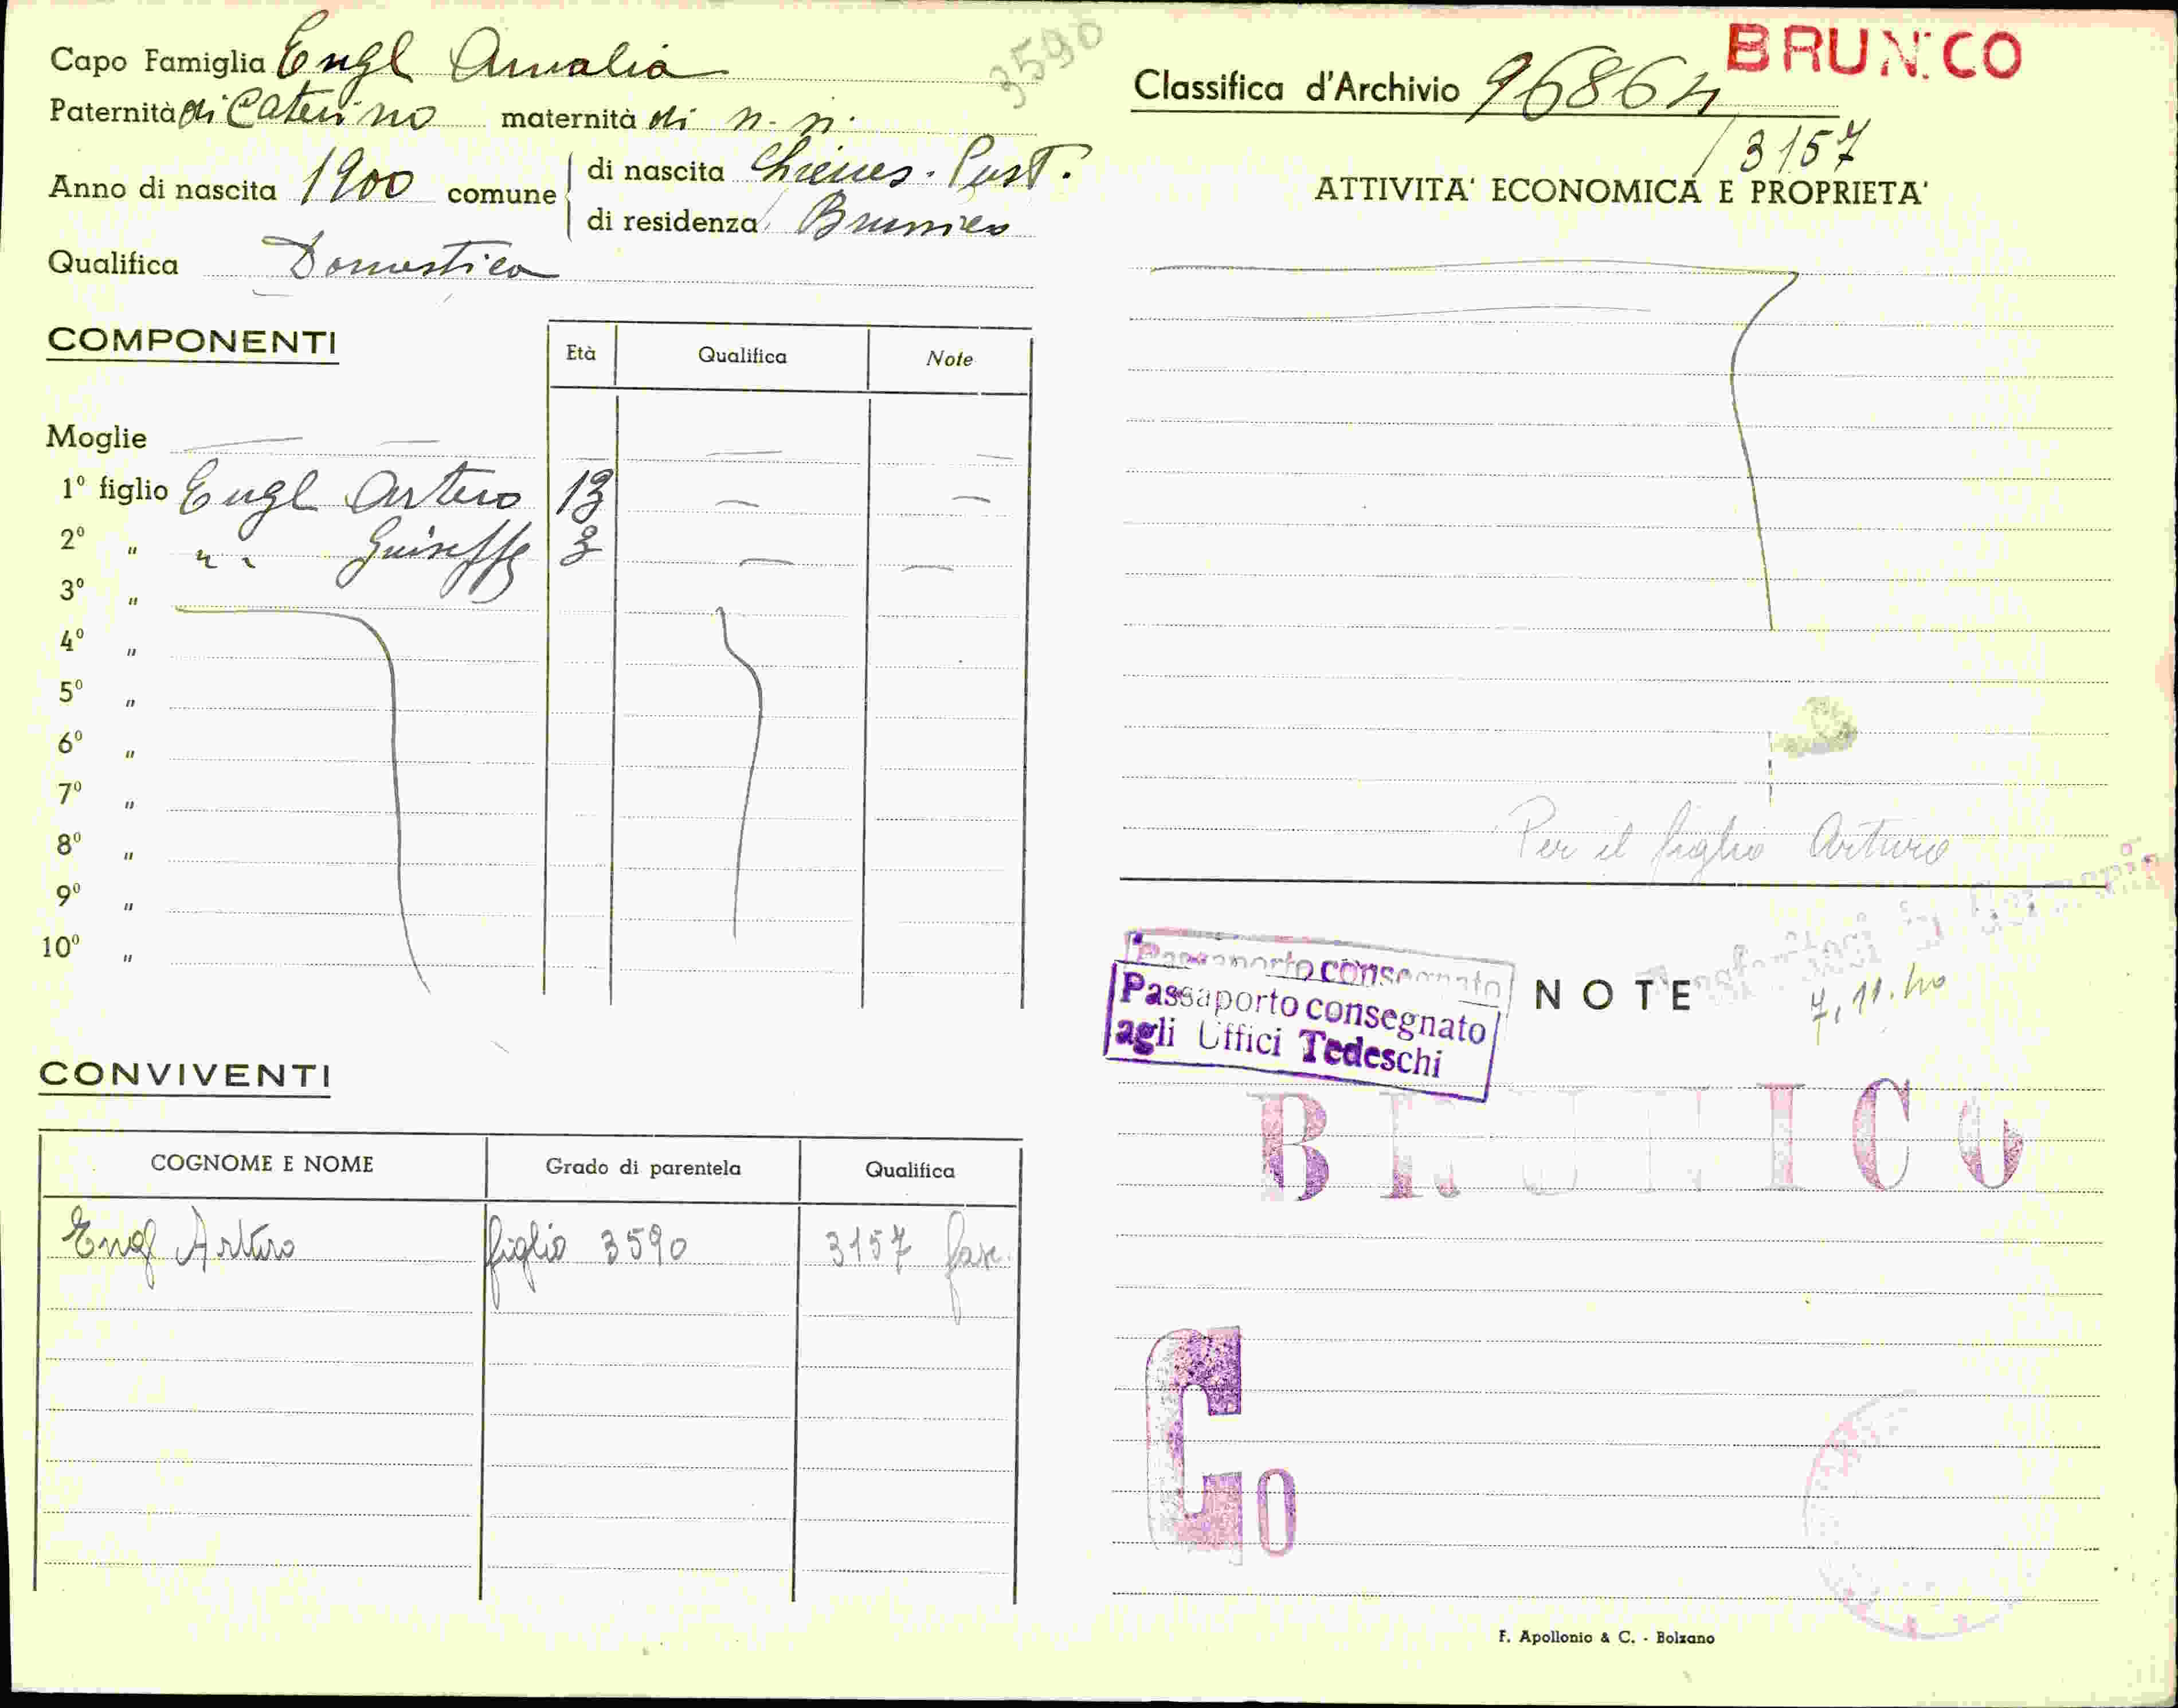 Capo Famiglia Engl Amalia
3590
Paternità di Caterina maternità di n. n.
Anno di nascita 1900 comune
di nascita Chienes. Pust.
di residenza Brunico
Qualifica Domestica
COMPONENTI
Età Qualifica Note
Moglie
1º figlio Engl Arturo 13
2º " " " 3
3º "
4º "
5º "
6º "
7º "
8º "
9º "
10º "
CONVIVENTI
COGNOME E NOME Grado di parentela Qualifica
Engl Arturo figlio 3590 3157 fasc.
BRUNICO
Classifica d'Archivio 96864
/3157
ATTIVITA' ECONOMICA E PROPRIETA'
Per il figlio Arturo
Passaporto consegnato
Passaporto consegnato
agli Uffici Tedeschi
NOTE
7.11.40
BRUNICO
Go
F. Apollonio & C. - Bolzano